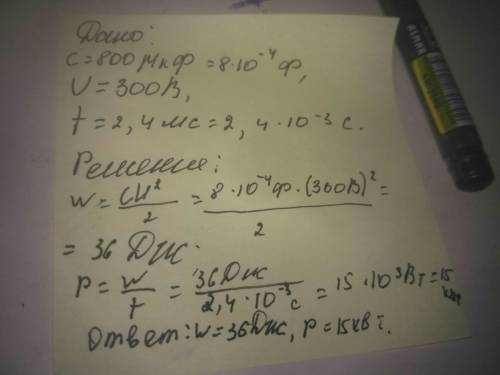 Дано:
C = 800 мкф = 8·10⁻⁴ф,
U = 300В,
t = 2,4 мс = 2,4·10⁻³ с.
Решение:
W = CU²/2 = 8·10⁻⁴ф·(300В)²/2 =
= 36 Дж.
P = W/t = 36Дж/2,4·10⁻³с = 15·10³Вт = 15 кВт
Ответ: W = 36Дж, P = 15кВт.